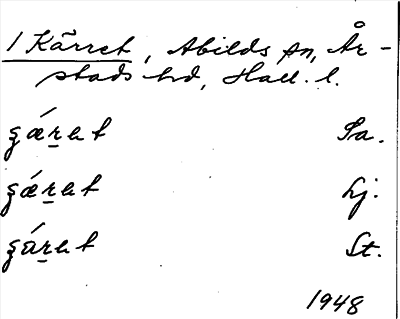 1 Kärret, Abilds sn, År-
stads hd, Hall. l.
ʂǽṟet Pa.
ʂǽṟet Lj.
ʂáṟet St.
1948